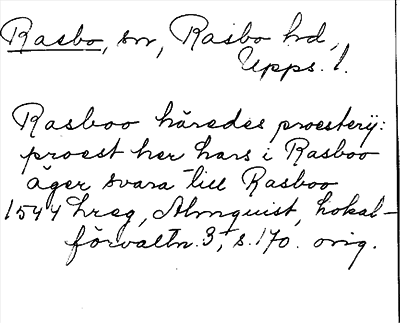 Rasbo, sn, Rasbo hd,
Upps. l.
Rasboo häredes proestery:
proest her hans i Rasboo
äger svara till Rasboo
1544 hreg, Almquist, Lokal-
förvaltn. 3, s. 170. orig.